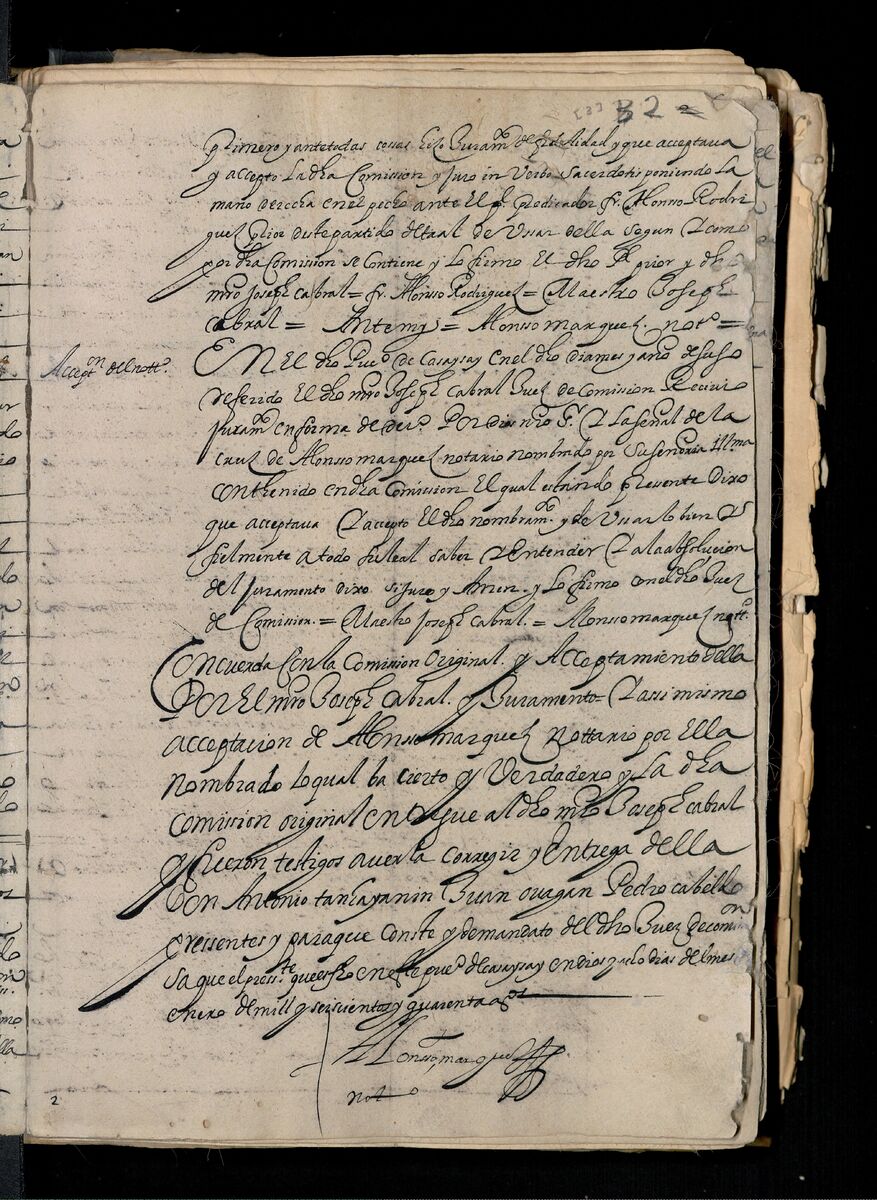 32
primero y ante todas cossas hiço Juramto de fidelidad y que acceptava
y accepto La dha Comission y Juro in Verbo Sacerdotis poniendo La
mano derecha en el pecho ante El pe predicador fr. Alonsso Rodri
guez Prior deste partido de Usar della segun y como
por dha Comission se Contiene y Lo firmo El dho Pe prior y dho
mro Joseph Cabral = fr. Alonsso Rodriguez = Maestro Joseph
Cabral = Ante my = Alonsso marquez noto =
Acceptn del notto.
EN El dho Puo de Casaysay en el dho dia mes y año de suso
referido El dho mro Joseph Cabral Juez de Comission Recivio
Juramto en forma de dero Por Dios nro Sr. y La señal de la
Cruz de Alonsso marquez notario nombrado por Su señoria Illma
conthenido en dha Comission El qual estando pressente Dixo
que acceptava y accepto El dho nombramto y de Usarlo bien y
fielmente a todo su leal saber y Entender y a la absolucion
del Juramento dixo si Juro y Amen. y Lo firmo con el dho Juez
de Comission. = Maestro Joseph Cabral. = Alonsso marquez notto.
Concuerda Con la Comission Original. y Acceptamiento della
Por El mro Joseph Cabral. y Juramento = y assimismo
acceptacion de Alonsso marquez Nottario por Ella
Nombrado lo qual ba cierto y Verdadero y La dha
comission original entregue al dho mro Joseph Cabral
y fueron testigos a verla corregir y Entrega della
Don Antonio Juan Pedro cabello
pressentes y para que conste y de mandato del dho Juez de comon
Saque el presste que es fho en este pueo de casaysay en dias del mes
enero de mill y seiscientos y quarenta as
Alonsso marquez
noto
2